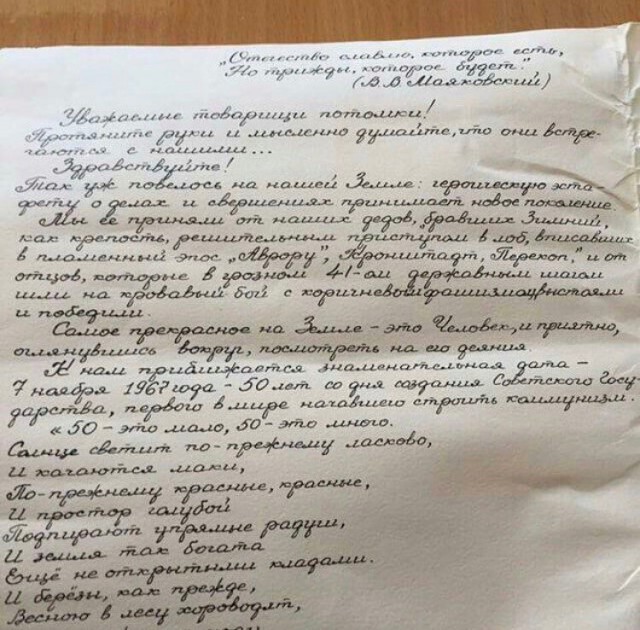 „Отечество славлю, которое есть,
Но трижды, которое будет."
(В.В. Маяковский)
Уважаемые товарищи потомки!
Протяните руки и мысленно думайте, что они встре-
чаются с нашими...
Здравствуйте!
Так уж повелось на нашей Земле: героическую эста-
фету о делах и свершениях принимает новое поколение.
Мы её приняли от наших дедов, бравших Зимний,
как крепость, решительным приступом в лоб, вписавших
в пламенный эпос „Аврору", Кронштадт, Перекоп," и от
отцов, которые в грозном 41-ом державным шагом
шли на кровавый бой с коричневой фашизма, выстояли
и победили.
Самое прекрасное на Земле - это Человек, и приятно,
оглянувшись вокруг, посмотреть на его деяния.
К нам приближается знаменательная дата -
7 ноября 1967 года - 50 лет со дня создания Советского Госу-
дарства, первого в мире начавшего строить коммунизм.
« 50 - это мало, 50 - это много.
Солнце светит по-прежнему ласково,
И качаются маки,
По-прежнему красные, красные,
И простор голубой
Подпирают упрямые радуги,
И земля так богата
Ещё не открытыми кладами.
И берёзы, как прежде,
Весною в лесу хороводят,